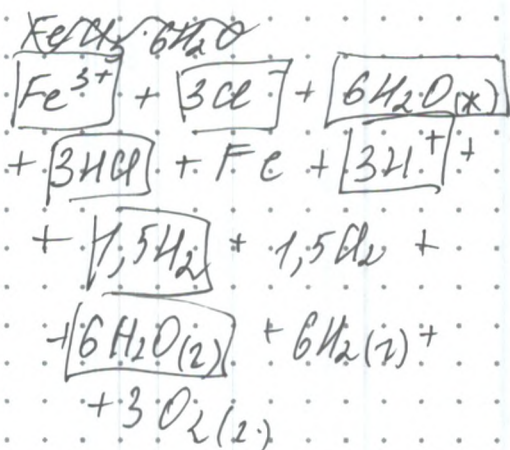 FeCl₃·6H₂O
Fe³⁺ + 3Cl⁻ + 6H₂O(ж)
+ 3HCl + Fe + 3H⁺ +
+ 1,5H₂ + 1,5Cl₂ +
+ 6H₂O(г) + 6H₂(г) +
+ 3O₂(г)